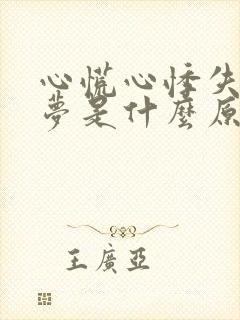 心慌心悸失
夢是什麼原
王廣亞